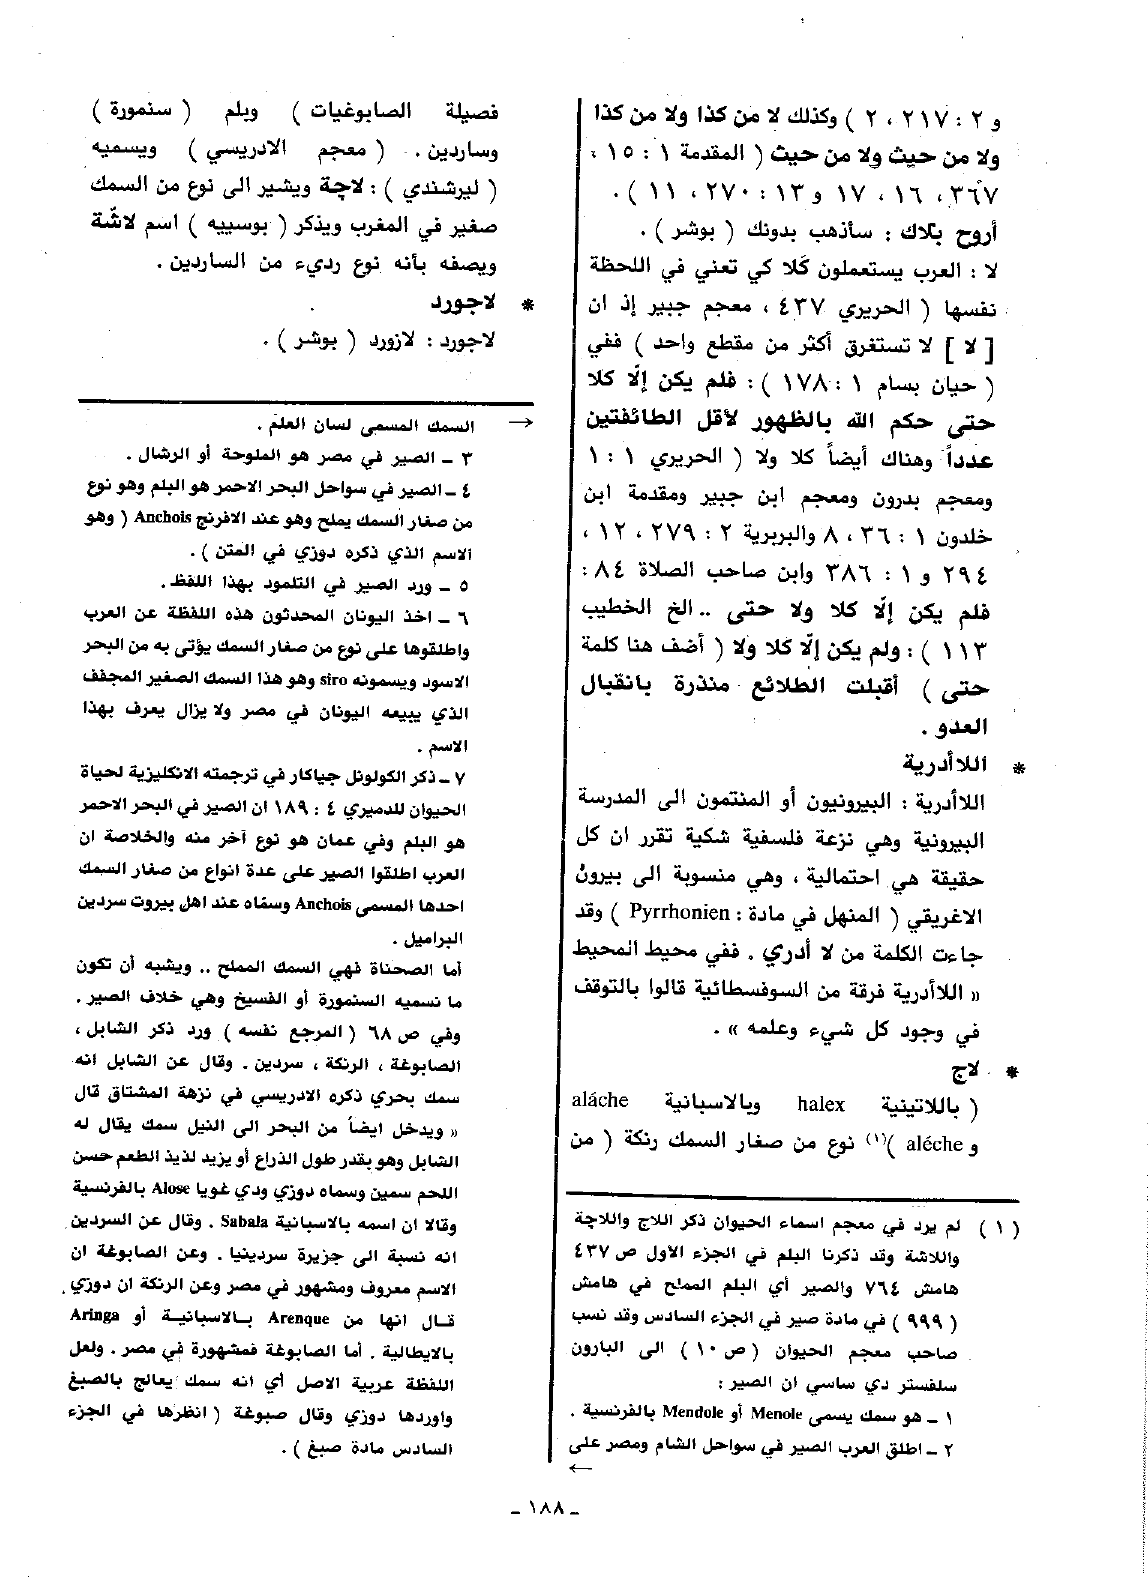 و ٢ : ٢١٧ ، ٢ ) وكذلك لا من كذا ولا من كذا
ولا من حيث ولا من حيث ( المقدمة ١ : ١٥ ،
٣٦٧ ، ١٦ ، ١٧ و ١٣ : ٢٧٠ ، ١١ ) .
أروح بلاك : سأذهب بدونك ( بوشر ) .
لا : العرب يستعملون كَلا كي تعني في اللحظة
نفسها ( الحريري ٤٣٧ ، معجم جبير إذ ان
[ لا ] لا تستغرق أكثر من مقطع واحد ) ففي
( حيان بسام ١ : ١٧٨ ) : فلم يكن إلّا كلا
حتى حكم الله بالظهور لأقل الطائفتين
عدداً وهناك أيضاً كلا ولا ( الحريري ١ : ١
ومعجم بدرون ومعجم ابن جبير ومقدمة ابن
خلدون ١ : ٣٦ ، ٨ والبربرية ٢ : ٢٧٩ ، ١٢ ،
٢٩٤ و ١ : ٣٨٦ وابن صاحب الصلاة ٨٤ :
فلم يكن إلّا كلا ولا حتى .. الخ الخطيب
١١٣ ) : ولم يكن إلّا كلا ولا ( أضف هنا كلمة
حتى ) أقبلت الطلائع منذرة بانقبال
العدو .
* اللاأدرية
اللاأدرية : البيرونيون أو المنتمون الى المدرسة
البيرونية وهي نزعة فلسفية شكية تقرر ان كل
حقيقة هي احتمالية ، وهي منسوبة الى بيرون
الاغريقي ( المنهل في مادة : Pyrrhonien ) وقد
جاءت الكلمة من لا أدري . ففي محيط المحيط
« اللاأدرية فرقة من السوفسطائية قالوا بالتوقف
في وجود كل شيء وعلمه » .
* لاج
( باللاتينية halex وبالاسبانية aláche
و aléche )(١) نوع من صغار السمك رنكة ( من
( ١ ) لم يرد في معجم اسماء الحيوان ذكر اللاج واللاچة
واللاشة وقد ذكرنا البلم في الجزء الاول ص ٤٣٧
هامش ٧٦٤ والصير أي البلم المملح في هامش
( ٩٩٩ ) في مادة صير في الجزء السادس وقد نسب
صاحب معجم الحيوان ( ص ١٠ ) الى البارون
سلفستر دي ساسي ان الصير :
١ ـ هو سمك يسمى Menole أو Mendole بالفرنسية .
٢ ـ اطلق العرب الصير في سواحل الشام ومصر على
←
فصيلة الصابوغيات ) وبلم ( سنمورة )
وساردين . ( معجم الادريسي ) ويسميه
( ليرشندي ) : لاچة ويشير الى نوع من السمك
صغير في المغرب ويذكر ( بوسييه ) اسم لاشّة
ويصفه بأنه نوع رديء من الساردين .
* لاجورد
لاجورد : لازورد ( بوشر ) .
→ السمك المسمى لسان العلم .
٣ ـ الصير في مصر هو الملوحة أو الرشال .
٤ ـ الصير في سواحل البحر الاحمر هو البلم وهو نوع
من صغار السمك يملح وهو عند الافرنج Anchois ( وهو
الاسم الذي ذكره دوزي في المتن ) .
٥ ـ ورد الصير في التلمود بهذا اللفظ .
٦ ـ اخذ اليونان المحدثون هذه اللفظة عن العرب
واطلقوها على نوع من صغار السمك يؤتى به من البحر
الاسود ويسمونه siro وهو هذا السمك الصغير المجفف
الذي يبيعه اليونان في مصر ولا يزال يعرف بهذا
الاسم .
٧ ـ ذكر الكولونل جياكار في ترجمته الانكليزية لحياة
الحيوان للدميري ٤ : ١٨٩ ان الصير في البحر الاحمر
هو البلم وفي عمان هو نوع آخر منه والخلاصة ان
العرب اطلقوا الصير على عدة انواع من صغار السمك
احدها المسمى Anchois وسمّاه عند اهل بيروت سردين
البراميل .
أما الصحناة فهي السمك المملح .. ويشبه أن تكون
ما نسميه السنمورة أو الفسيخ وهي خلاف الصير .
وفي ص ٦٨ ( المرجع نفسه ) ورد ذكر الشابل ،
الصابوغة ، الرنكة ، سردين . وقال عن الشابل انه
سمك بحري ذكره الادريسي في نزهة المشتاق قال
« ويدخل ايضاً من البحر الى النيل سمك يقال له
الشابل وهو بقدر طول الذراع أو يزيد لذيذ الطعم حسن
اللحم سمين وسماه دوزي ودي غويا Alose بالفرنسية
وقالا ان اسمه بالاسبانية Sabala . وقال عن السردين
انه نسبة الى جزيرة سردينيا . وعن الصابوغة ان
الاسم معروف ومشهور في مصر وعن الرنكة ان دوزي
قال انها من Arenque بالاسبانية أو Aringa
بالايطالية . أما الصابوغة فمشهورة في مصر . ولعل
اللفظة عربية الاصل أي انه سمك يعالج بالصبغ
واوردها دوزي وقال صبوغة ( انظرها في الجزء
السادس مادة صبغ ) .
ـ ١٨٨ ـ